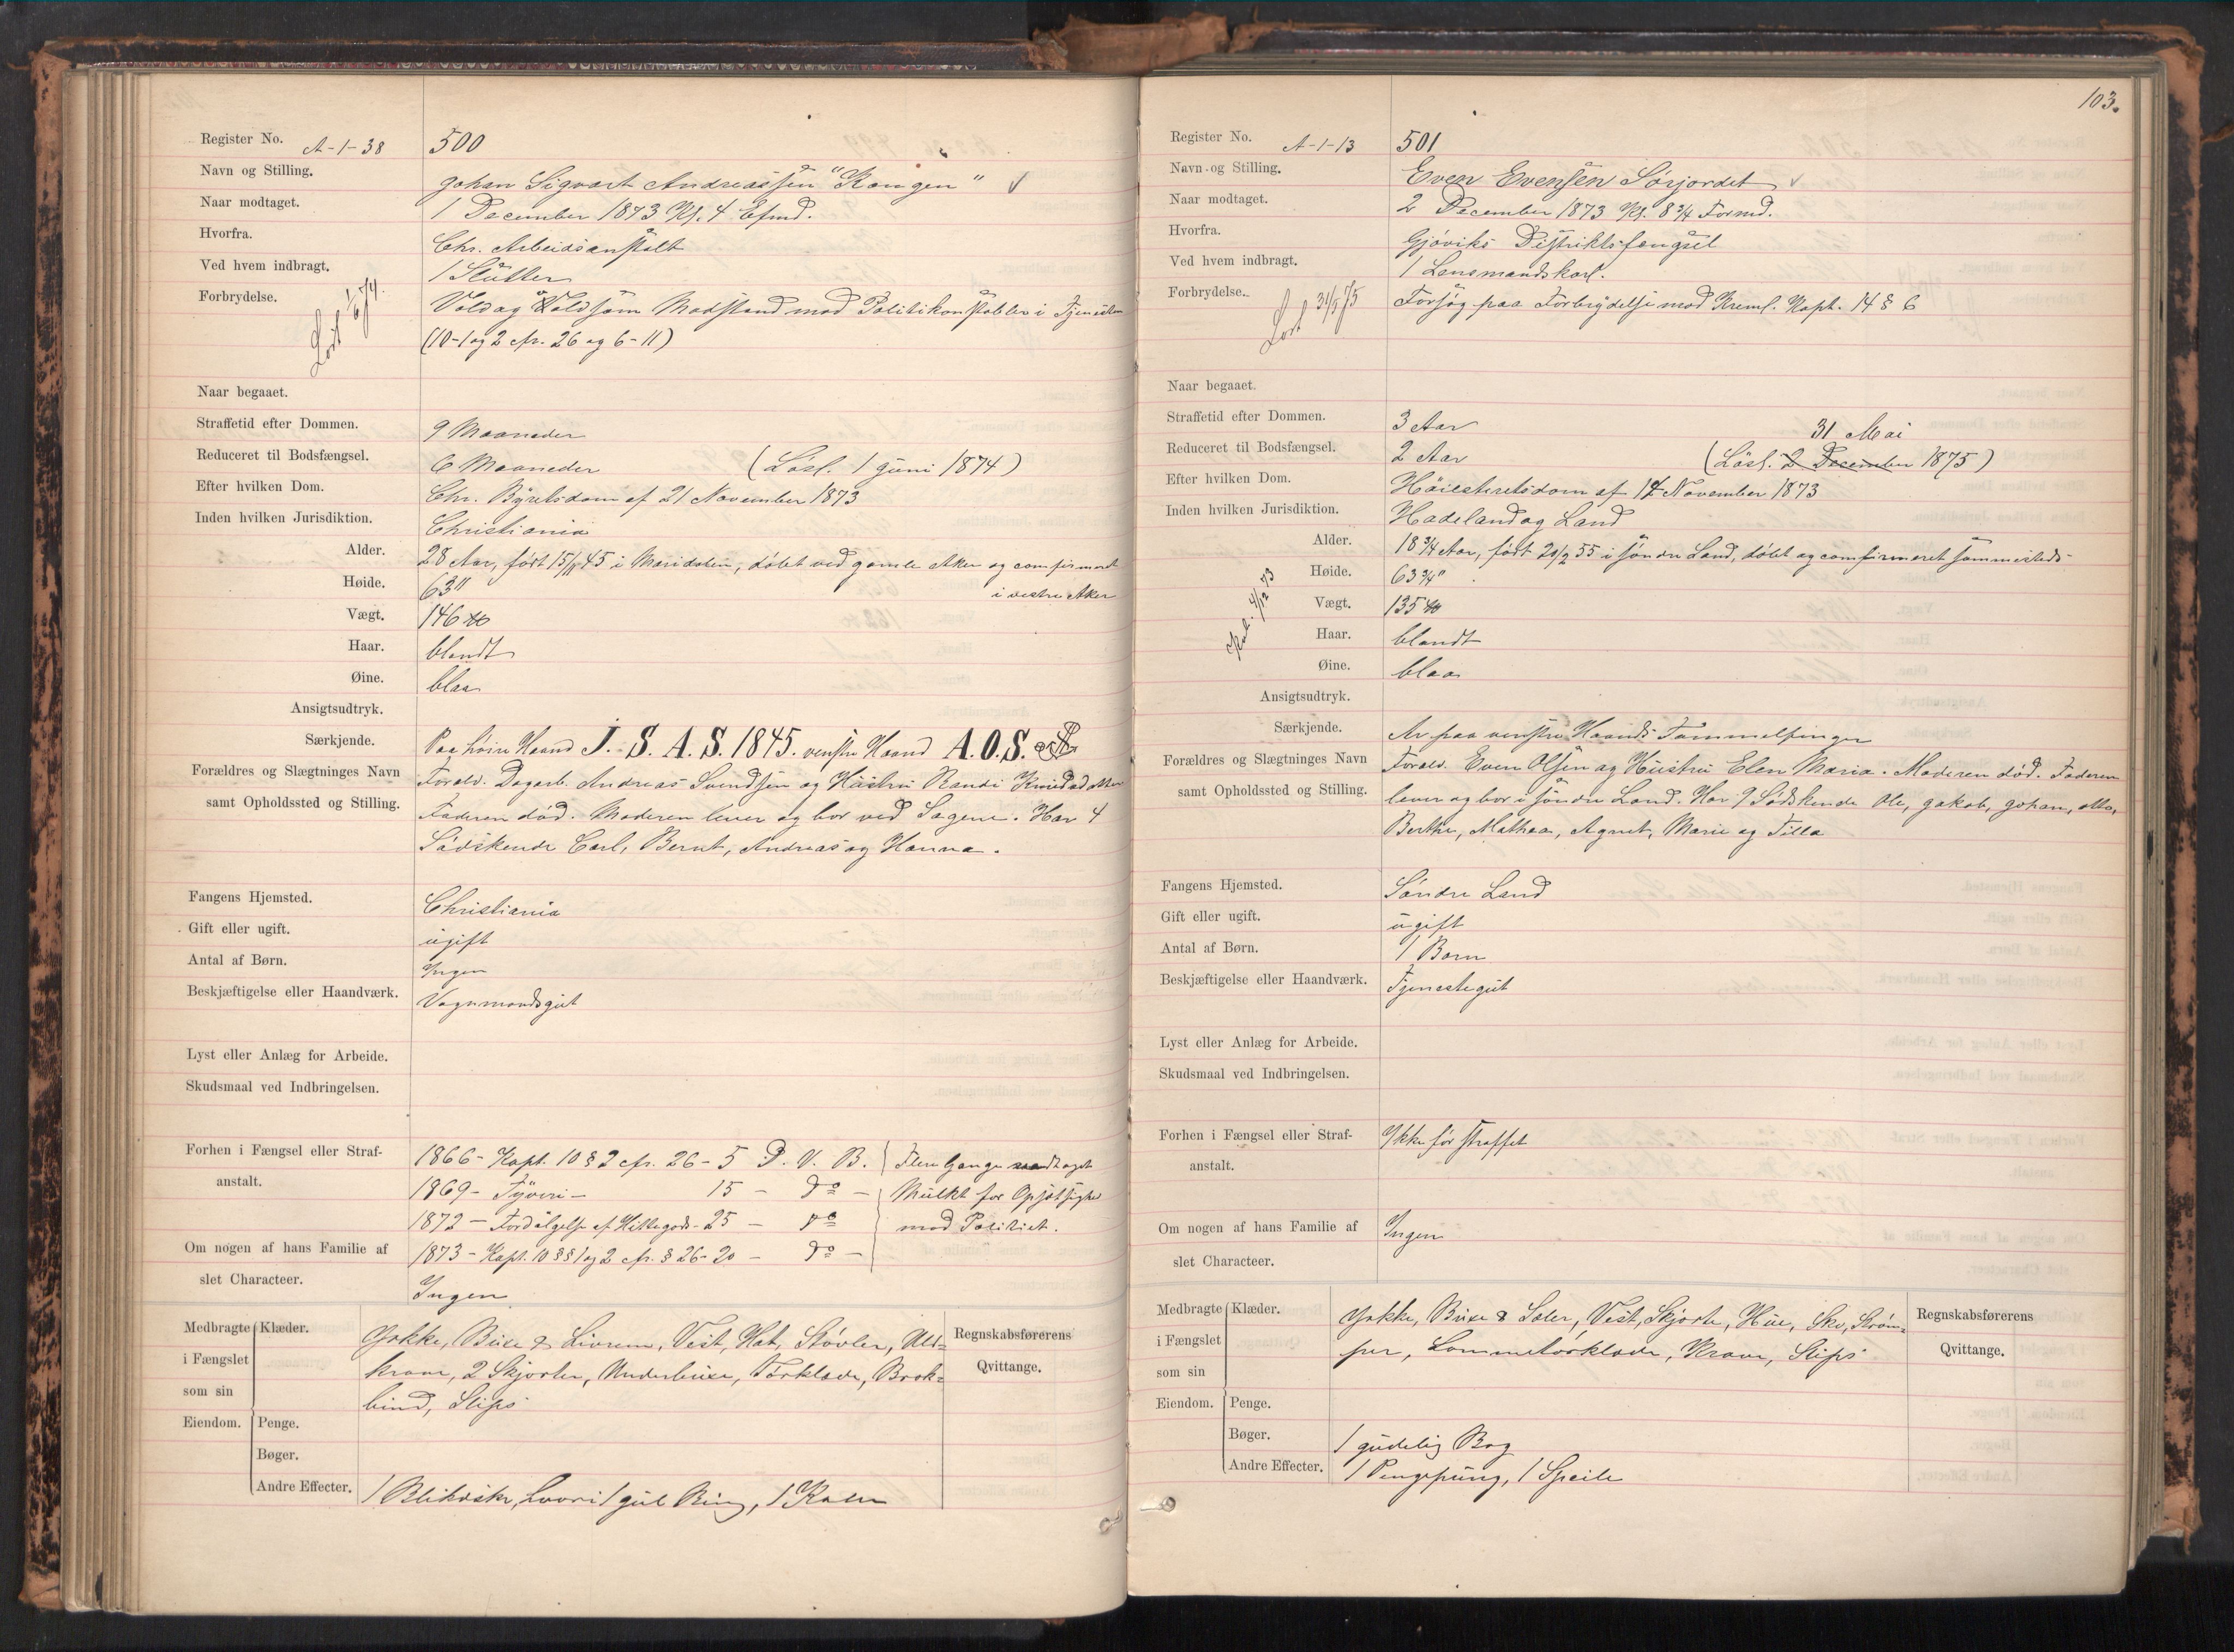 Register No. A-1-38 500
Navn og Stilling. Johan Sigvart Andreassen "Kongen" √
Naar modtaget. 1 December 1873 Kl. 4 Efmd.
Hvorfra. Chr. Arbeidsanstalt
Ved hvem indbragt. 1 Slutter
Forbrydelse. Vold og Voldsom Modstand mod Politikonstabler i Tjenesten
Løst 1/6 74.
(10-1 og 2 cfr. 26 og 6-11)
Naar begaaet.
Straffetid efter Dommen. 9 Maaneder
Reduceret til Bodsfængsel. 6 Maaneder (Løsl. 1 Juni 1874)
Efter hvilken Dom. Chr. Byretsdom af 21 November 1873
Inden hvilken Jurisdiktion. Christiania
Alder. 28 Aar, født 15/11 45 i Maridalen, døbt ved gamle Aker og comfirmeret
i vestre Aker
Høide. 63"
Vægt. 146 ℔
Haar. blondt
Øine. blaa
Ansigtsudtryk.
Særkjende. Paa høire Haand J. S. A. S. 1845. venstre Haand A.O.S.
Forældres og Slægtninges Navn Foræld. Dagarb. Andreas Svendsen og Hustru Randi Knudsdatter
samt Opholdssted og Stilling. Faderen død. Moderen lever og bor ved Sagene. Har 4
Sødskende Carl, Bernt, Andreas og Hanna.
Fangens Hjemsted. Christiania
Gift eller ugift. ugift
Antal af Børn. Ingen
Beskjæftigelse eller Haandværk. Vognmandsgut
Lyst eller Anlæg for Arbeide.
Skudsmaal ved Indbringelsen.
Forhen i Fængsel eller Straf- 1866 - Kapt. 10 § 2 cfr. 26 - 5 D. V. B. Flere Gange modtaget
anstalt. 1869 - Tyveri - 15 - do - Mulkt for Opsætsighed
1872 - Fordølgelse af Hittegods - 25 - do mod Politiet.
Om nogen af hans Familie af 1873 - Kapt. 10 §§ 1 og 2 cfr. § 26 - 20 - do -
slet Characteer. Ingen
Medbragte i Fængslet som sin Eiendom. Klæder. Jakke, Buxe & Livrem, Vest, Hat, Støvler, Uld-
krave, 2 Skjorter, Underbuxe, Tørklæde, Brok-
bind, Slips
Regnskabsførerens Qvittange.
Penge.
Bøger.
Andre Effecter. 1 Blikæske, hvori 1 gul Ring, 1 Kam
103.
Register No. A-1-13 501
Navn og Stilling. Even Evensen Sørjordet √
Naar modtaget. 2 December 1873 Kl. 8 3/4 Formd.
Hvorfra. Gjøviks Distriktsfængsel
Ved hvem indbragt. 1 Lensmandskarl.
Forbrydelse. Forsøg paa Forbrydelse mod Kreml. Kapt. 14 § 6
Løst 31/5 75
Naar begaaet.
Straffetid efter Dommen. 3 Aar
31 Mai
Reduceret til Bodsfængsel. 2 Aar (Løsl. 2 December 1875)
Efter hvilken Dom. Høiesteretsdom af 14 November 1873
Inden hvilken Jurisdiktion. Hadeland og Land
Alder. 18 3/4 Aar, født 20/2 55 i søndre Land, døbt og comfirmeret sammesteds
Høide. 63 3/4"
4/12 73
Vægt. 135 ℔
Haar. blondt
Øine. blaa
Ansigtsudtryk.
Særkjende. Ar paa venstre Haands Tommelfinger
Forældres og Slægtninges Navn Foræld. Even Olsen og Hustru Elen Maria. Moderen død. Faderen
samt Opholdssted og Stilling. lever og bor i søndre Land. Har 9 Sødskende Ole, Jakob, Johan, Otto,
Berthe, Mathea, Agnet, Marie og Tilla
Fangens Hjemsted. Søndre Land
Gift eller ugift. ugift
Antal af Børn. 1 Barn
Beskjæftigelse eller Haandværk. Tjenestegut
Lyst eller Anlæg for Arbeide.
Skudsmaal ved Indbringelsen.
Forhen i Fængsel eller Straf- Ikke før straffet
anstalt.
Om nogen af hans Familie af Ingen
slet Characteer.
Medbragte i Fængslet som sin Eiendom. Klæder. Jakke, Buxe & Seler, Vest, Skjorte, Hue, Sko, Strøm-
per, Lommetørklæde, Krave, Slips
Regnskabsførerens Qvittange.
Penge.
Bøger. 1 gudelig Bog
Andre Effecter. 1 Pengepung, 1 Speile